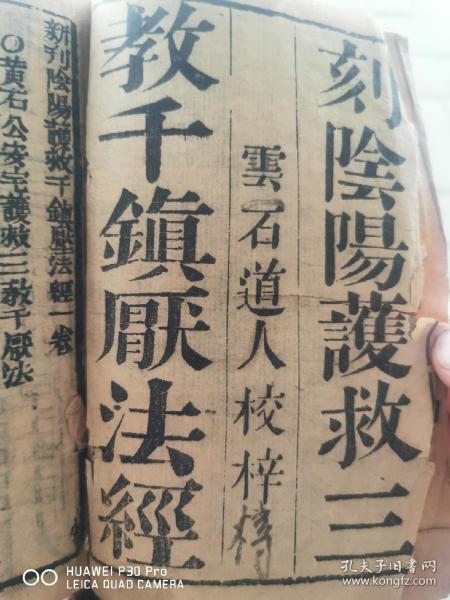 刻陰陽護救三
雲石道人校梓
教千鎮厭法經
新刋陰陽護救千鎮厭法經一卷
○黃石公安宅護救三教千厭法
HUAWEI P30 Pro
LEICA QUAD CAMERA
孔夫子旧书网
www.kongfz.com